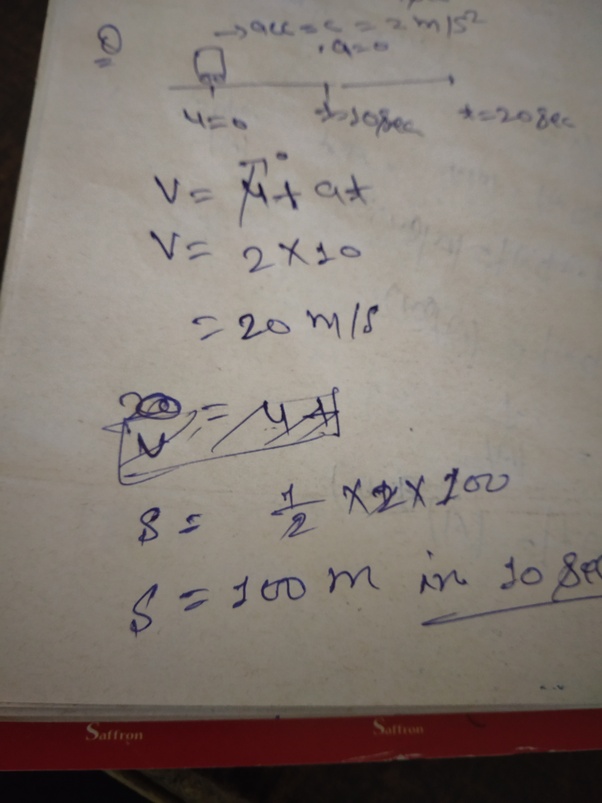 Q
→ acc = c = 2 m/s²
a=0
u=0 t=10sec t=20sec
V = u + at
V = 2×10
= 20 m/s
20 = ut
V
S = 1/2 ×2×100
S = 100 m in 10 sec
Saffron Saffron